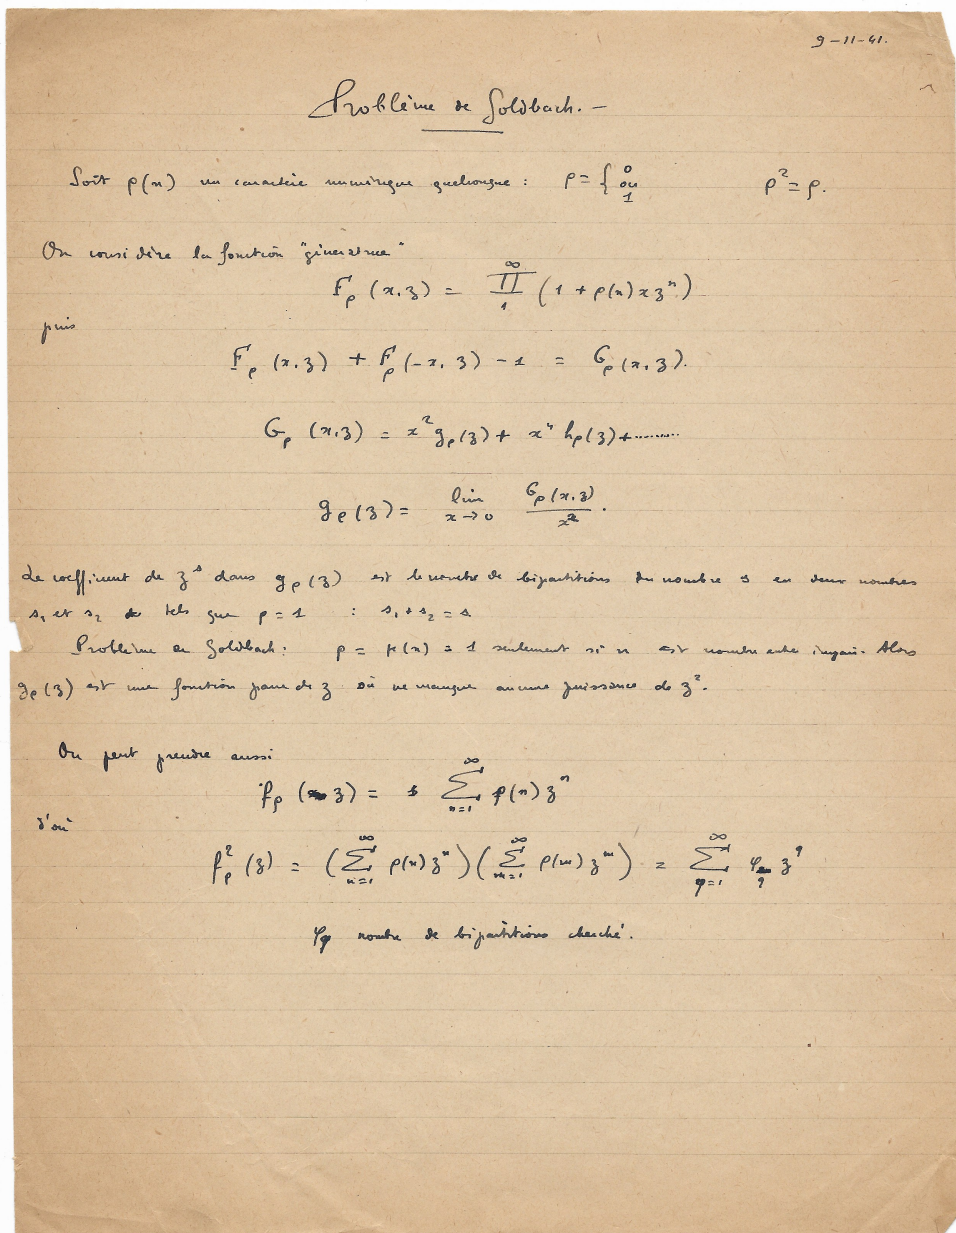 9-11-41.
Problème de Goldbach. —
Soit ρ(n) un caractère numérique quelconque : ρ = { 0 ou 1 ρ² = ρ.
On considère la fonction "génératrice"
F_ρ (x, z) = ∏_1^∞ (1 + ρ(n) x z^n)
puis
F_ρ (x, z) + F_ρ (-x, z) - 1 = G_ρ (x, z).
G_ρ (x, z) = x² g_ρ(z) + x⁴ h_ρ(z) + ........
g_ρ (z) = lim_{x→0} G_ρ(x, z) / x².
Le coefficient de z^s dans g_ρ(z) est le nombre de bipartitions du nombre s en deux nombres
s₁ et s₂ tels que ρ = 1 : s₁ + s₂ = s
Problème de Goldbach : ρ = (n) = 1 seulement si n est nombre impair. Alors
g_ρ(z) est une fonction paire de z où ne manque aucune puissance de z².
On peut prendre aussi
f_ρ (z) = ∑_{n=1}^∞ ρ(n) z^n
d'où
f_ρ² (z) = (∑_{n=1}^∞ ρ(n) z^n) (∑_{m=1}^∞ ρ(m) z^m) = ∑_{q=1}^∞ φ_q z^q
φ_q nombre de bipartitions cherché.